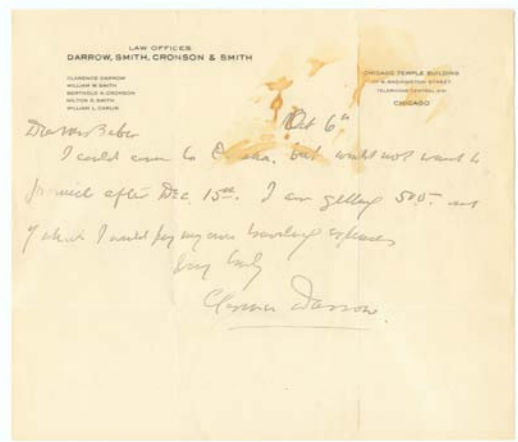 LAW OFFICES
DARROW, SMITH, CRONSON & SMITH
CLARENCE DARROW
WILLIAM W. SMITH
BERTHOLD A. CRONSON
MILTON D. SMITH
WILLIAM L. CARLIN
CHICAGO TEMPLE BUILDING
77 W. WASHINGTON STREET
TELEPHONE CENTRAL
CHICAGO
Oct 6th
Dear Mr Baber
I could come to Omaha. but would not want to
after Dec. 15th. I am getting 500 - out
of which I would pay my own traveling expenses
Very truly
Clarence Darrow.